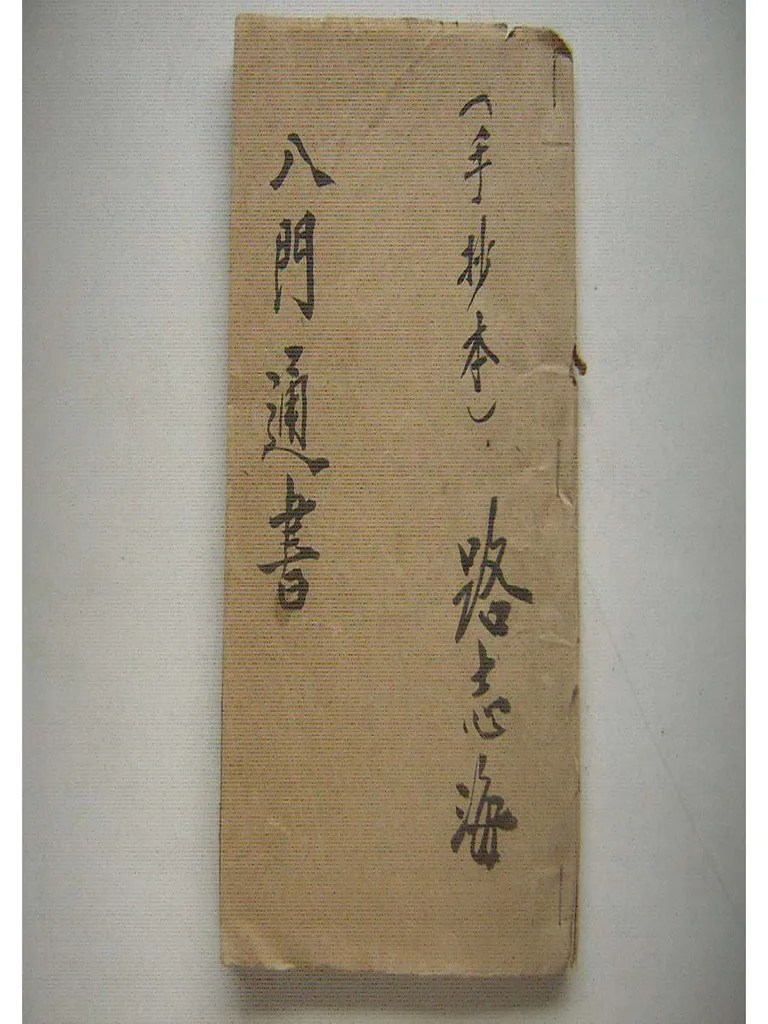 （手抄本）.
路志海
八門通書